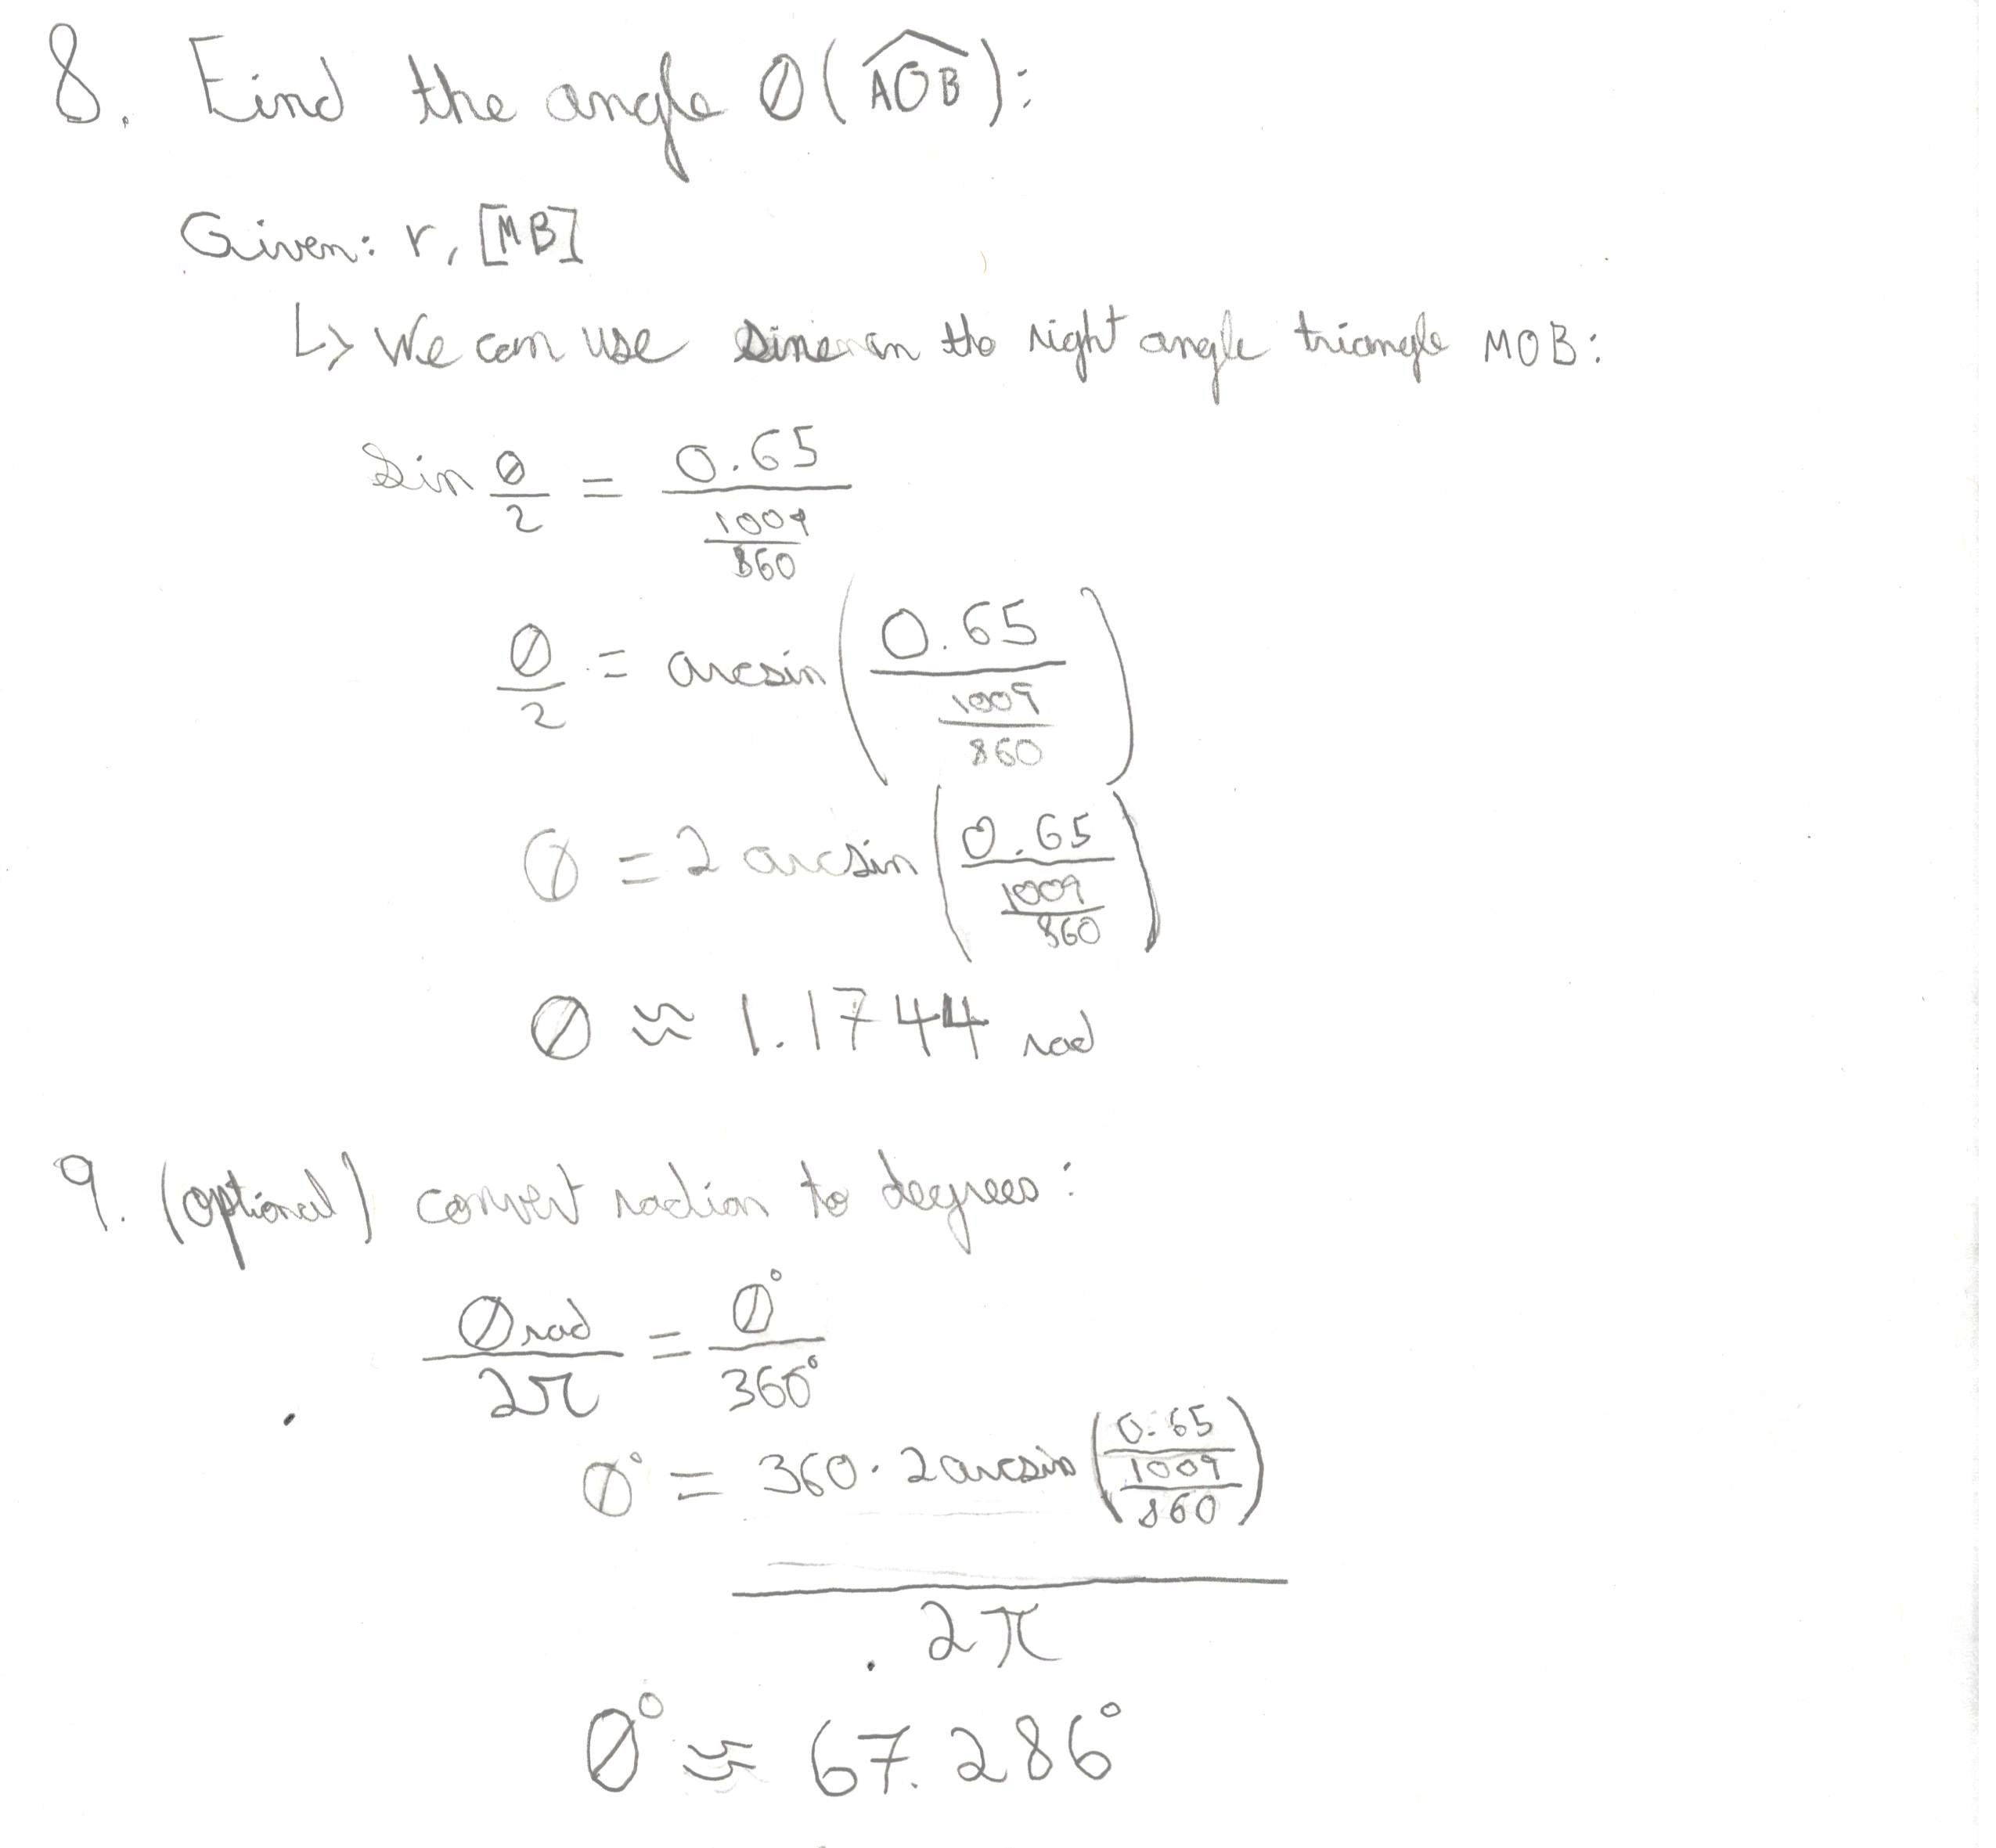 8. Find the angle θ(AOB):
Given: r, [MB]
↳ We can use sine in the right angle triangle MOB:
sin θ/2 = 0.65/(1009/860)
θ/2 = arcsin(0.65/(1009/860))
θ = 2 arcsin(0.65/(1009/860))
θ ≈ 1.1744 rad
9. (optional) convert radian to degrees:
θrad/2π = θ°/360°
θ° = 360 · 2 arcsin(0.65/(1009/860))
2π
θ° ≈ 67.286°